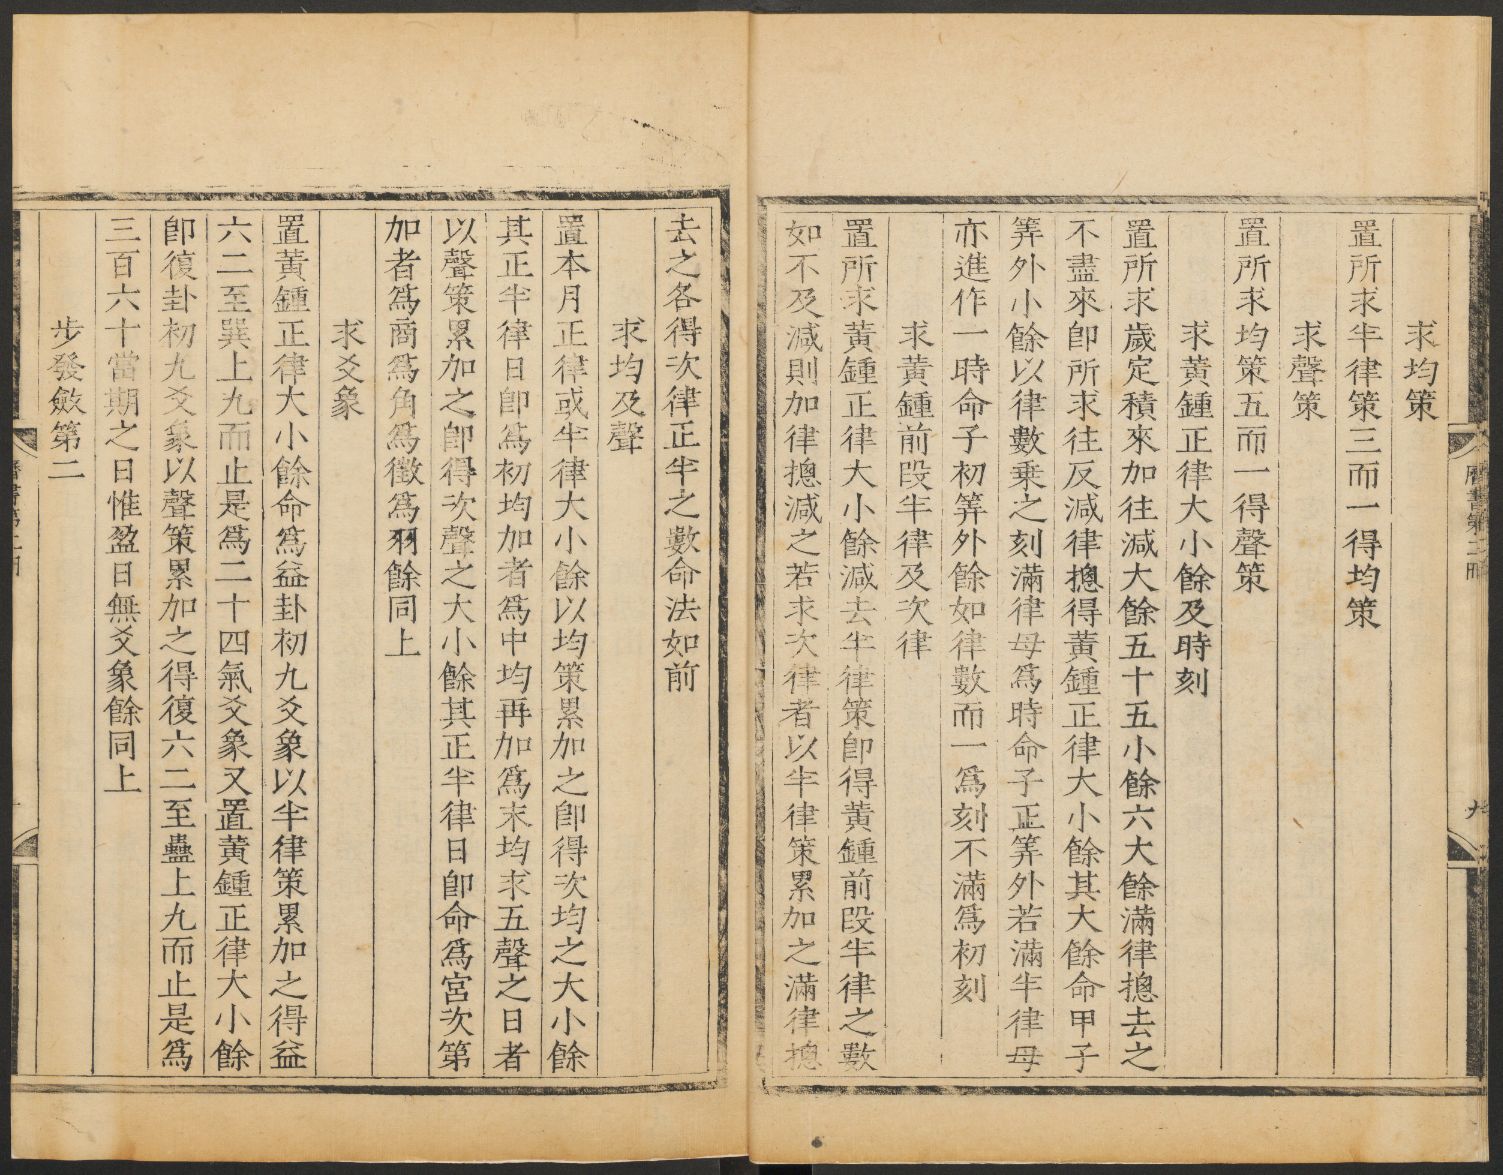 求均策
置所求半律策三而一得均策
求聲策
置所求均策五而一得聲策
求黃鍾正律大小餘及時刻
置所求歲定積來加往減大餘五十五小餘六大餘滿律摠去之
不盡來卽所求往反減律摠得黃鍾正律大小餘其大餘命甲子
筭外小餘以律數乗之刻滿律母爲時命子正筭外若滿半律母
亦進作一時命子初筭外餘如律數而一爲刻不滿爲初刻
求黃鍾前段半律及次律
置所求黃鍾正律大小餘減去半律策卽得黃鍾前段半律之數
如不及減則加律摠減之若求次律者以半律策累加之滿律摠
曆書第二冊
九
去之各得次律正半之數命法如前
求均及聲
置本月正律或半律大小餘以均策累加之卽得次均之大小餘
其正半律日卽爲初均加者爲中均再加爲末均求五聲之日者
以聲策累加之卽得次聲之大小餘其正半律日卽命爲宮次第
加者爲商爲角爲徵爲羽餘同上
求爻象
置黃鍾正律大小餘命爲益卦初九爻象以半律策累加之得益
六二至巽上九而止是爲二十四氣爻象又置黃鍾正律大小餘
卽復卦初九爻象以聲策累加之得復六二至蠱上九而止是爲
三百六十當期之日惟盈日無爻象餘同上
步發斂第二